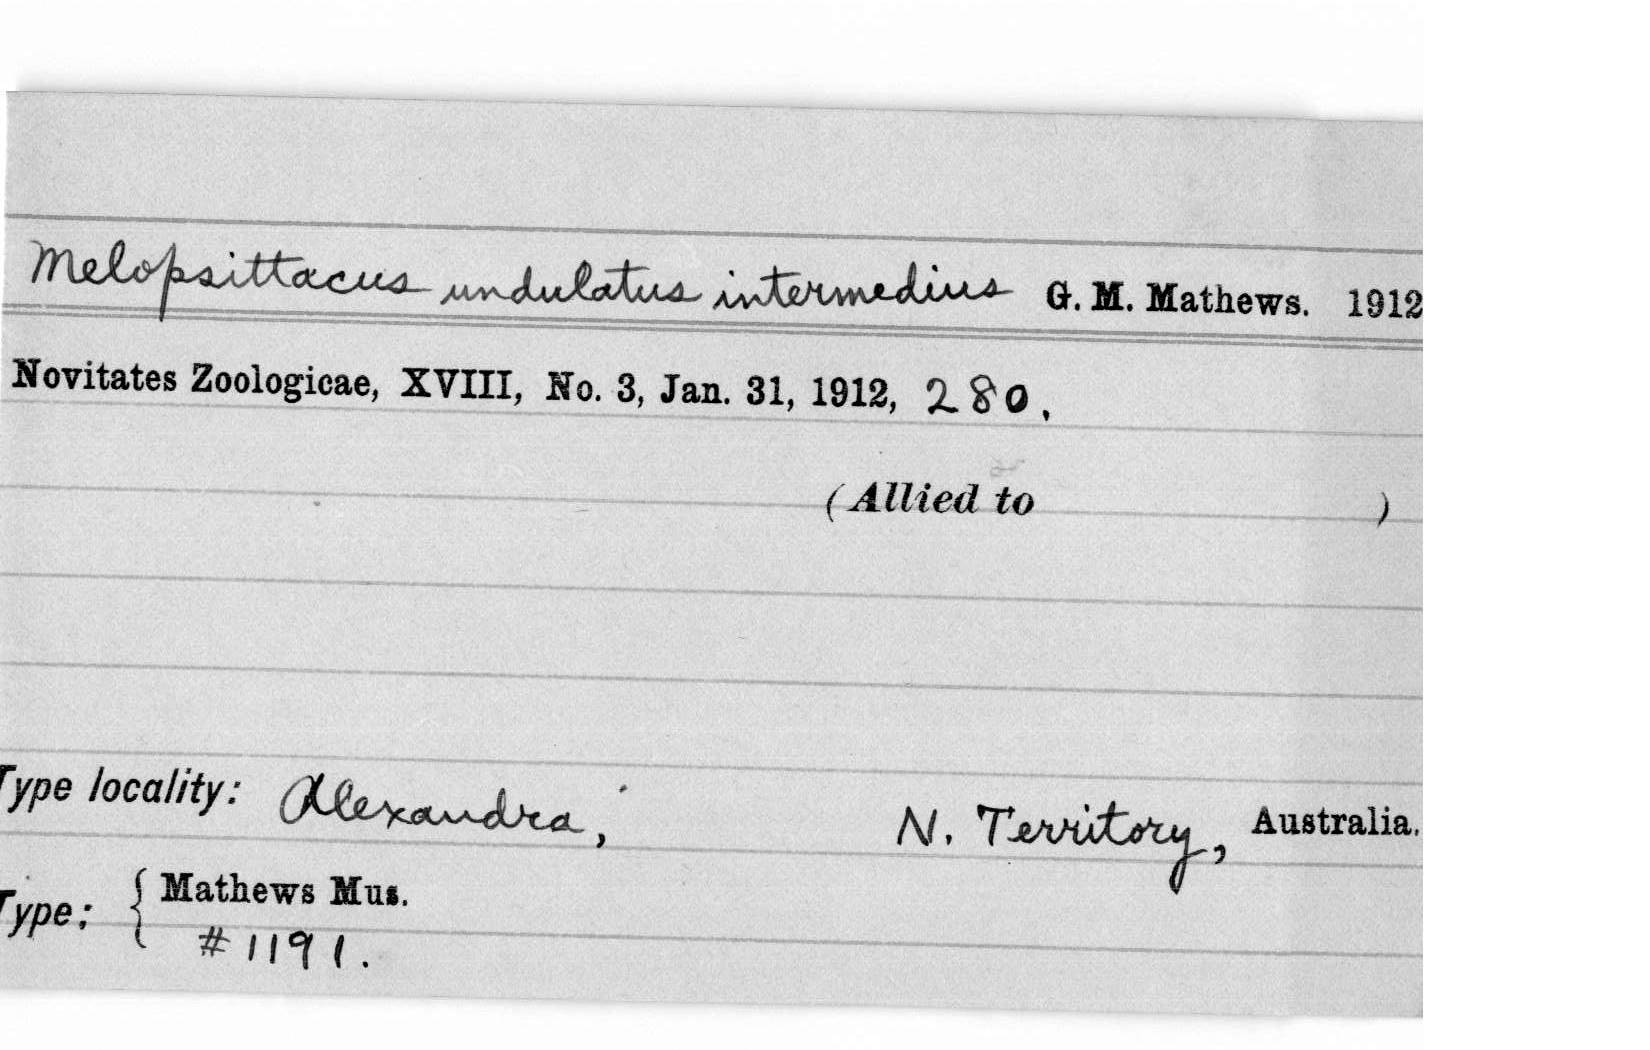 Melopsittacus undulatus intermedius G. M. Mathews. 1912
Novitates Zoologicae, XVIII, No. 3, Jan. 31, 1912, 280.
(Allied to )
Type locality: Alexandra, N. Territory, Australia.
Type: { Mathews Mus.
#1191.